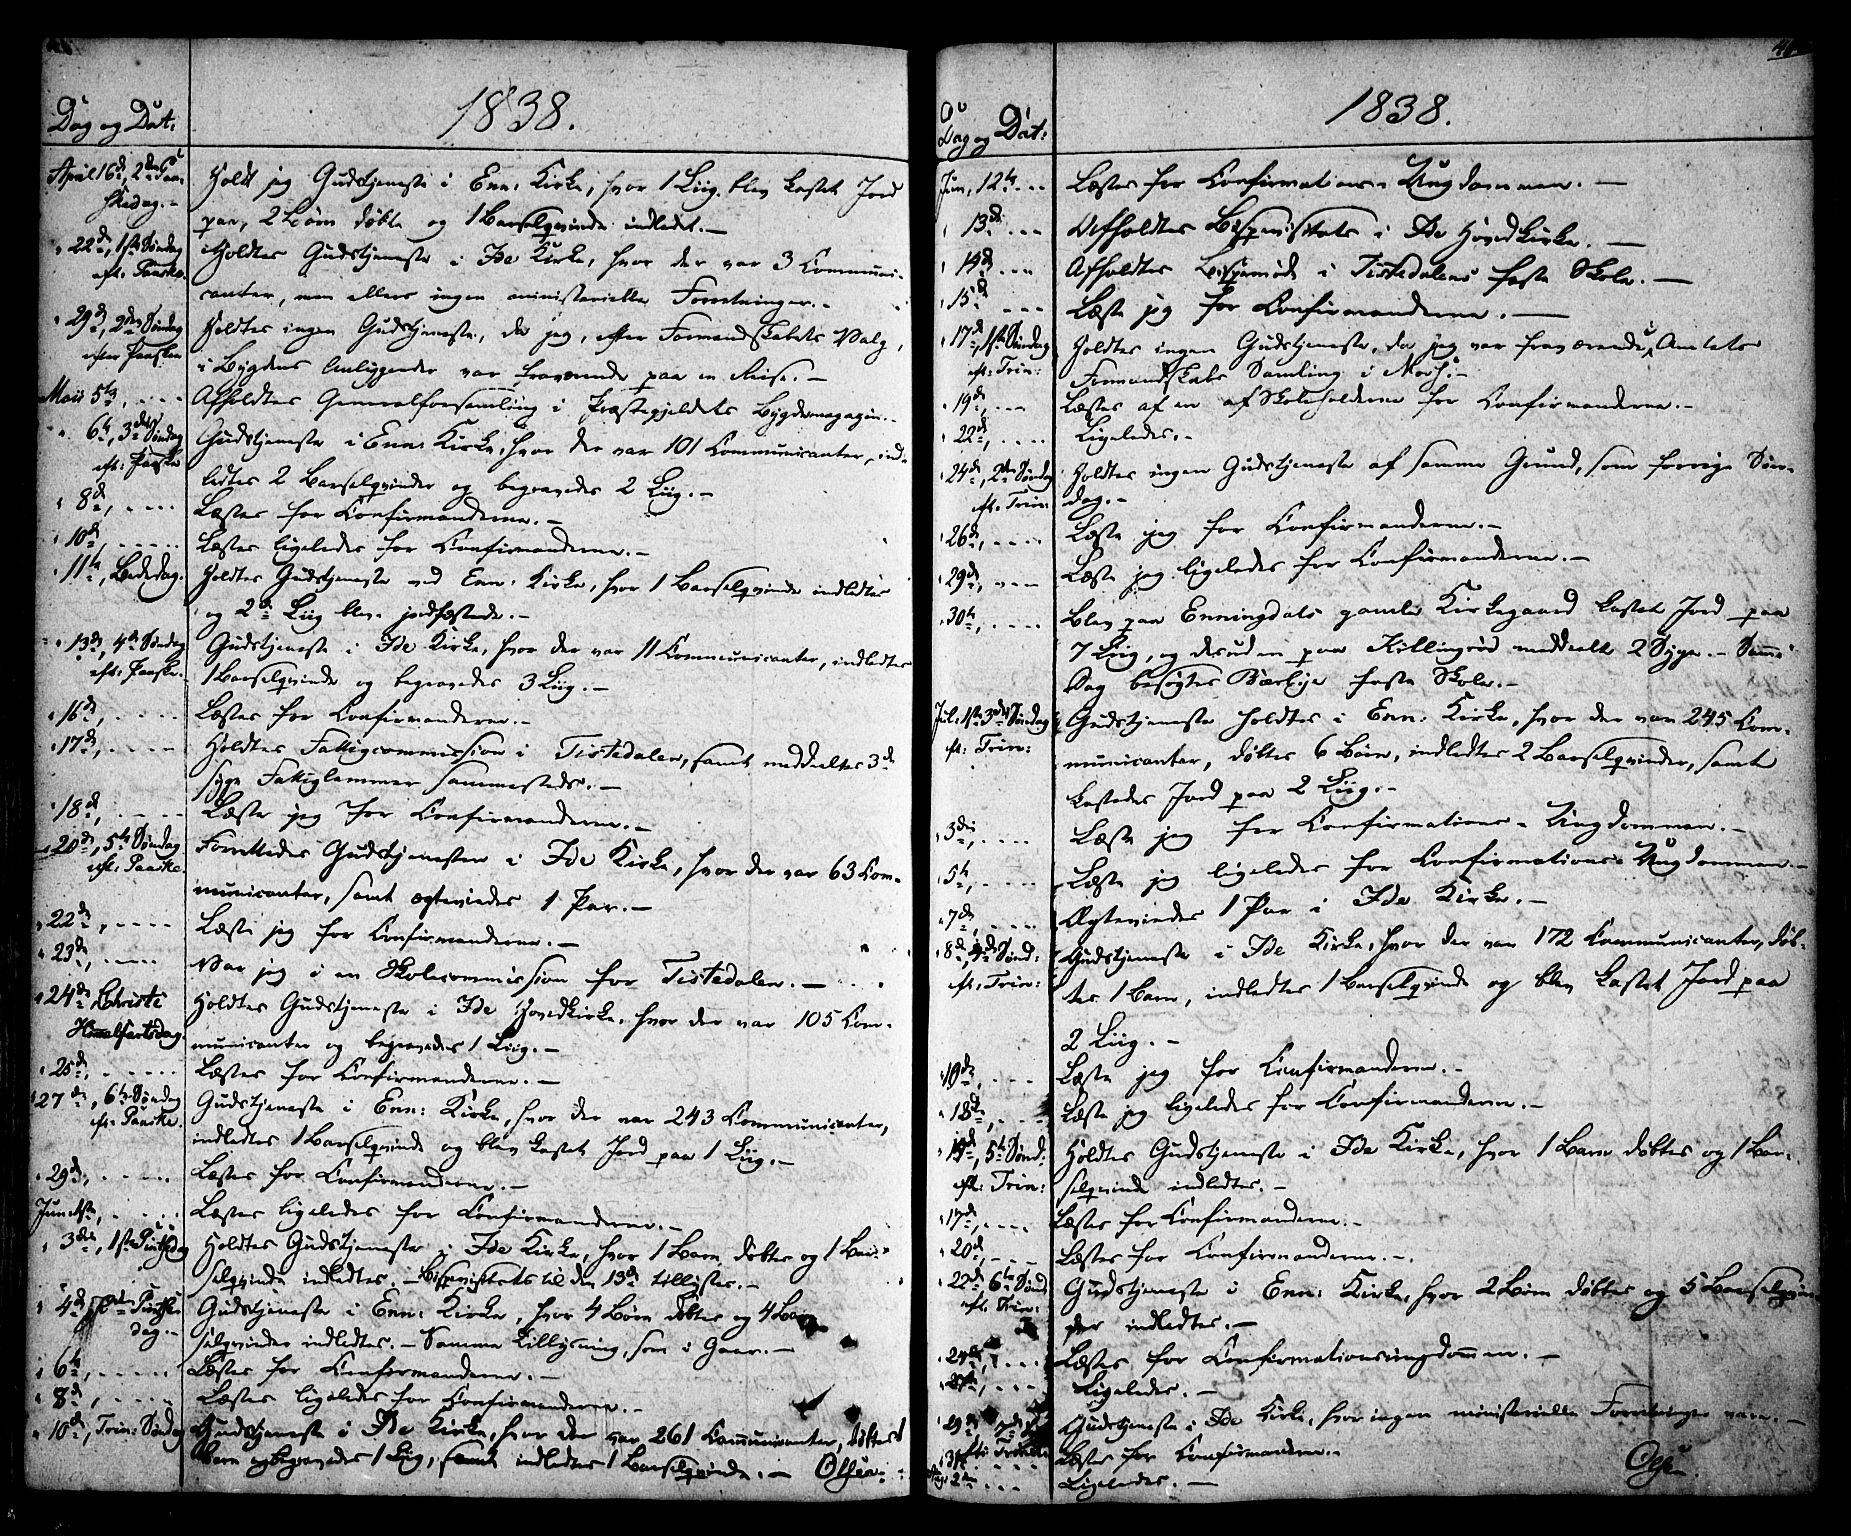 46
Dag og Dat:
1838.
April 16d, 2den Paa-
skedag.-
Holdt jeg Gudstjeneste i Enn: Kirke, hvor 1 Liig blev kastet Jord
paa, 2 Børn døbte og 1 Barselqvinde indledet.-
" 22d, 1ste Søndag
eft: Paaske.
Holdtes Gudstjeneste i Ide Kirke, hvor der var 3 Communi-
canter, men ellers ingen ministerielle Forretninger.-
" 29d, 2den Søndag
efter Paasken
Holdtes ingen Gudstjeneste, da jeg, efter Formandskabets Valg,
i Bygdens Anliggender var fraværende paa en Reise.-
Maii 5te, - - -
Afholdtes Generalforsamling i Præstegjeldets Bygdemagazin.-
" 6te, 3die Søndag
eft: Paaske
Gudstjeneste i Enn: Kirke, hvor der var 101 Communicanter, ind-
ledtes 2 Barselqvinder og begravedes 2 Liig.-
" 8d, - - - -
Læstes for Confirmanderne.-
" 10d, - - - - -
Læstes ligeledes for Confirmanderne.-
" 11te, Bededag.
Holdtes Gudstjeneste ved Enn: Kirke, hvor 1 Barselqvinde indledtes
og 2de Liig blev jordfæstede.-
" 13de, 4de Søndag
eft: Paaske.
Gudstjeneste i Ide Kirke, hvor der var 11 Communicanter, indledtes
1 Barselqvinde og begravedes 3 Liig.-
" 16d, - - - -
Læstes for Confirmanderne.-
" 17d, - - - -
Holdtes Fattigcommission i Tistedalen, samt meddeeltes 3de
syge Fattiglemmer sammesteds.-
" 18d, - - - -
Læste jeg for Confirmanderne.-
" 20de, 5te Søndag
eft: Paaske.
Forrettedes Gudstjenesten i Ide Kirke, hvor der var 63 Com-
municanter, samt ægteviedes 1 Par.-
" 22d, - - - -
Læste jeg for Confirmanderne.-
" 23d, - - - -
Var jeg i en Skolecommission for Tistedalen.-
" 24de Christi
Himmelfartsdag.
Holdtes Gudstjeneste i Ide Hovedkirke, hvor der var 105 Com-
municanter og begravedes 1 Liig.-
" 25d, - - - - -
Læstes for Confirmanderne.-
" 27de, 6te Søndag
eft: Paaske.
Gudstjeneste i Enn: Kirke, hvor der var 243 Communicanter,
indledtes 1 Barselqvinde og blev kastet Jord paa 1 Liig.-
" 29d, - - - - -
Læstes for Confirmanderne.-
Juni 1ste, - - - -
Læstes ligeledes for Confirmanderne.-
" 3die, 1ste Pintsdag
Holdtes Gudstjeneste i Ide Kirke, hvor 1 Barn døbtes og 1 Bar-
selqvinde indledtes. - Bispevisitats til den 13de tillystes.-
" 4d, 2den Pintse-
dag.-
Gudstjeneste i Enn: Kirke, hvor 4 Børn døbtes og 4 Bar-
selqvinder indledtes. - Samme Tillysning, som i Gaar.-
" 6te, - - - - -
Læstes for Confirmanderne.-
" 8d, - - - - -
Læstes ligeledes for Confirmanderne.-
" 10de, Trin: Søndag
Gudstjeneste i Ide Kirke, hvor der var 261 Communicanter, døbtes 1
Barn og begravedes 1 Liig, samt indledtes 1 Barselqvinde.-
Dag og Dat:
1838.
Jun, 12te - - -
Læstes for Confirmations-Ungdommen.-
" 13de - - -
Afholdtes Bispevisitats i Ide Hovedkirke.-
" 14d - - -
Afholdtes Bispemøde i Tistedalens faste Skole.-
" 15d - - -
Læste jeg for Confirmanderne.-
" 17d, 1ste Søndag
eft: Trin:
Holdtes ingen Gudstjeneste, da jeg var fraværende i Amtets
Formandskabs Samling i Moss.-
" 19d, - - -
Læstes af en af Skoleholderne for Confirmanderne.-
" 22d, - - - -
Ligeledes.-
" 24d, 2den Søndag
eft: Trin:
Holdtes ingen Gudstjeneste af samme Grund, som forrige Søn-
dag.-
" 26d, - - - -
Læste jeg for Confirmanderne.-
" 29d, - - -
Læste jeg ligeledes for Confirmanderne.-
" 30te, - - - -
Blev paa Enningdals gamle Kirkegaard kastet Jord paa
7 Liig, og desuden paa Killingrød meddeelt 2 Syge. - Samme
Dag besøgtes Bærbye faste Skole.-
Jul: 1ste 3die Søndag
eft: Trin:
Gudstjeneste holdtes i Enn: Kirke, hvor der var 245 Com-
municanter, døbtes 6 Børn, indledtes 2 Barselqvinder, samt
kastedes Jord paa 2 Liig.-
" 3die, - - - -
Læste jeg for Confirmations-Ungdommen.-
" 5te, - - - -
Læste jeg ligeledes for Confirmations-Ungdommen.-
" 7de, - - - -
Ægteviedes 1 Par i Ide Kirke.-
" 8de, 4de Sønd:
eft: Trin:
Gudstjeneste i Ide Kirke, hvor der var 172 Communicanter, døb-
tes 1 Barn, indledtes 1 Barselqvinde og blev kastet Jord paa
2 Liig.-
Læste jeg for Confirmanderne.-
Læste jeg ligeledes for Confirmanderne.-
5te Sønd:
eft: Trin:
Holdtes Gudstjeneste i Ide Kirke, hvor 1 Barn døbtes og 1 Bar-
selqvinde indledtes.-
" 17d, - - - -
Læstes for Confirmanderne.-
" 20d, - - -
Læstes for Confirmanderne.-
" 22d, 6te Sønd
eft: Trin:
Gudstjeneste i Enn: Kirke, hvor 2 Børn døbtes og 5 Barselqvin-
der indledtes.-
" 24d, - - -
Læstes for Confirmationsungdommen.-
" 27d, - - -
Ligeledes.-
" 29d,
eft: Trin:
Gudstjeneste i Ide Kirke, hvor ingen ministerielle Forretninger vare.-
" 31te
Læstes for Confirmanderne.-
2den - - -
Ligeledes.-